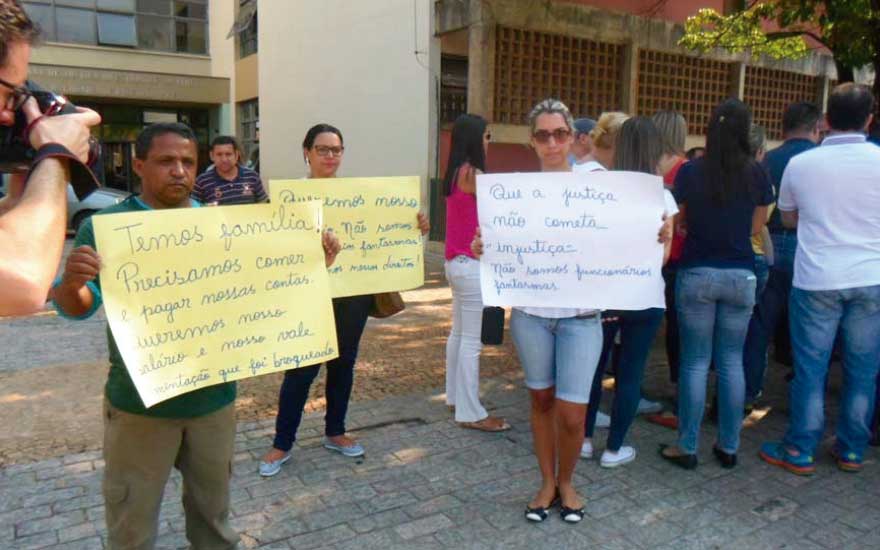 Temos família
Precisamos comer
e pagar nossas contas.
Queremos nosso
salário e nosso vale
mentação que foi bloqueado
Queremos nosso
Não somos
fantasmas!
nossos direitos!
Que a justiça
não cometa
injustiça=
Não somos funcionários
fantasmas